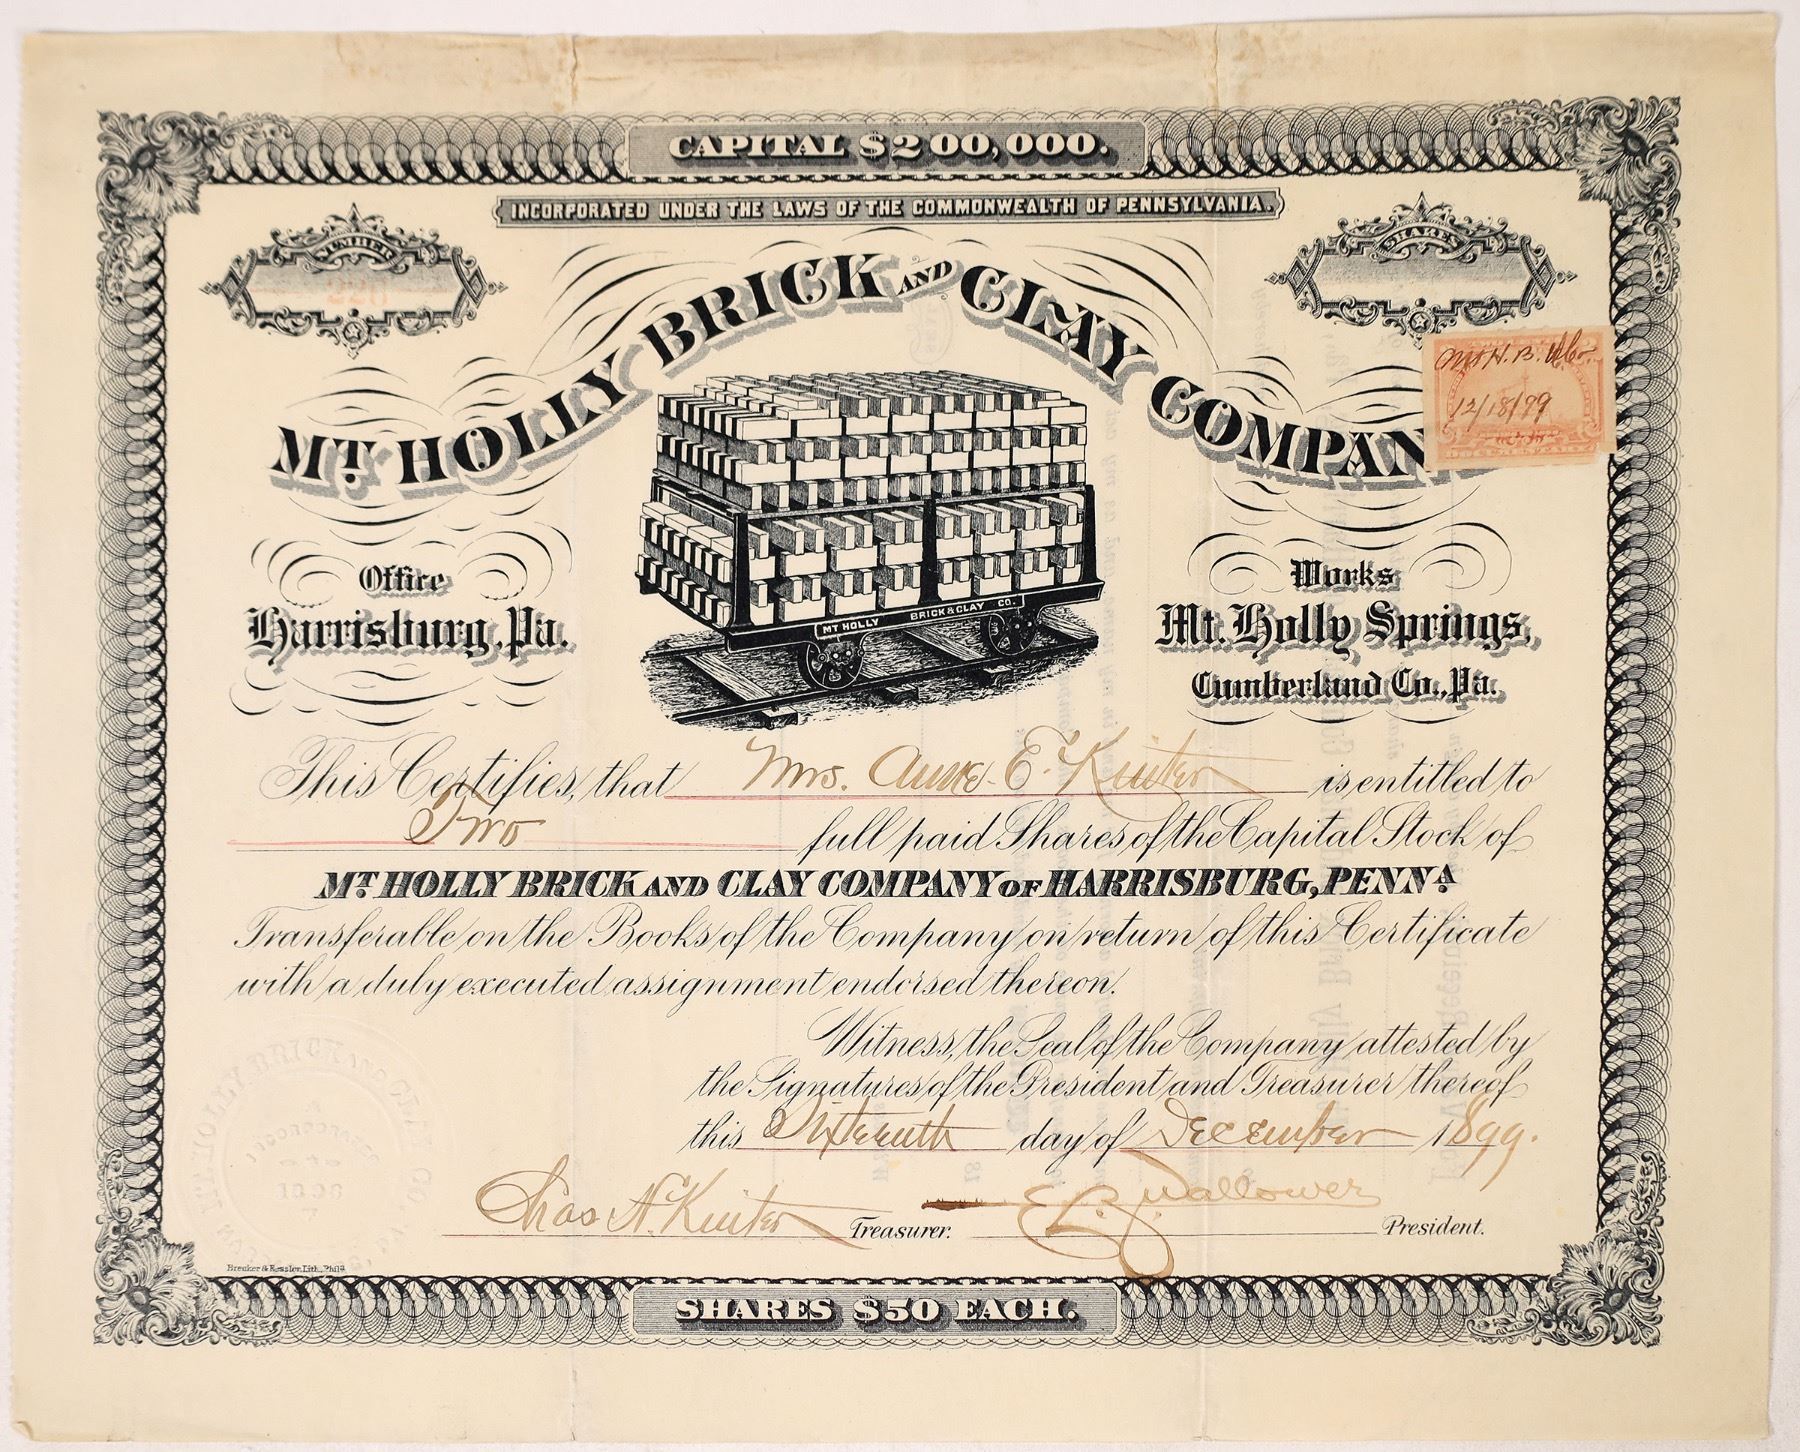 CAPITAL $200,000.
INCORPORATED UNDER THE LAWS OF THE COMMONWEALTH OF PENNSYLVANIA.
NUMBER
226
SHARES
MT. HOLLY BRICK AND CLAY COMPAN
Mt. H. B. &Co.
12/18/99
Office
Harrisburg, Pa.
Works
Mt. Holly Springs,
Cumberland Co., Pa.
MT HOLLY BRICK & CLAY CO.
This Certifies, that Mrs. Anne E. Kinter is entitled to
Two full paid Shares of the Capital Stock of
MT. HOLLY BRICK AND CLAY COMPANY OF HARRISBURG, PENNA.
Transferable on the Books of the Company on return of this Certificate
with a duly executed assignment endorsed thereon.
Witness, the Seal of the Company attested by
the Signatures of the President and Treasurer thereof
this Sixteenth day of December 1899.
Chas H. Kinter Treasurer. E. Z. Wallower President.
Breuker & Kessler, Lith., Phila
SHARES $50 EACH.